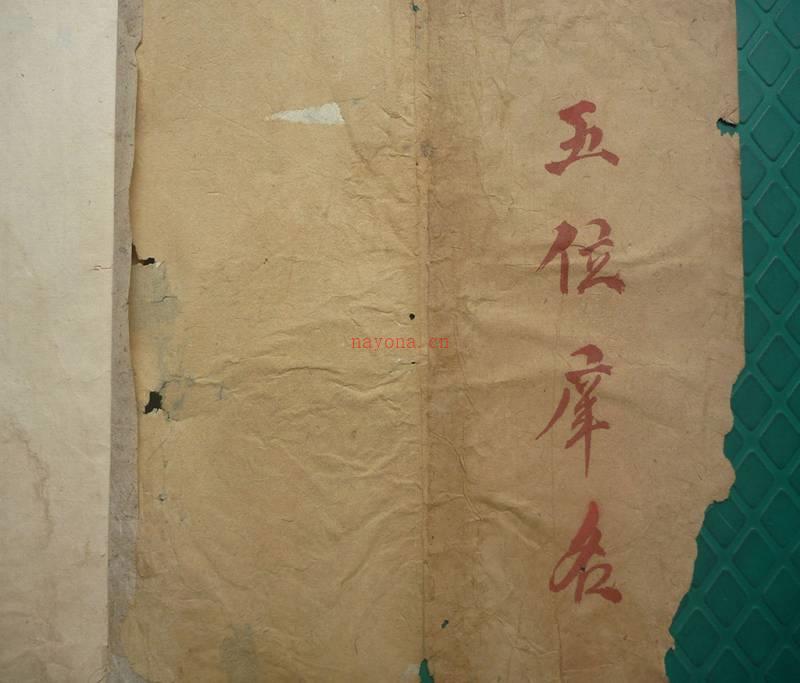 五位库名
nayona.cn